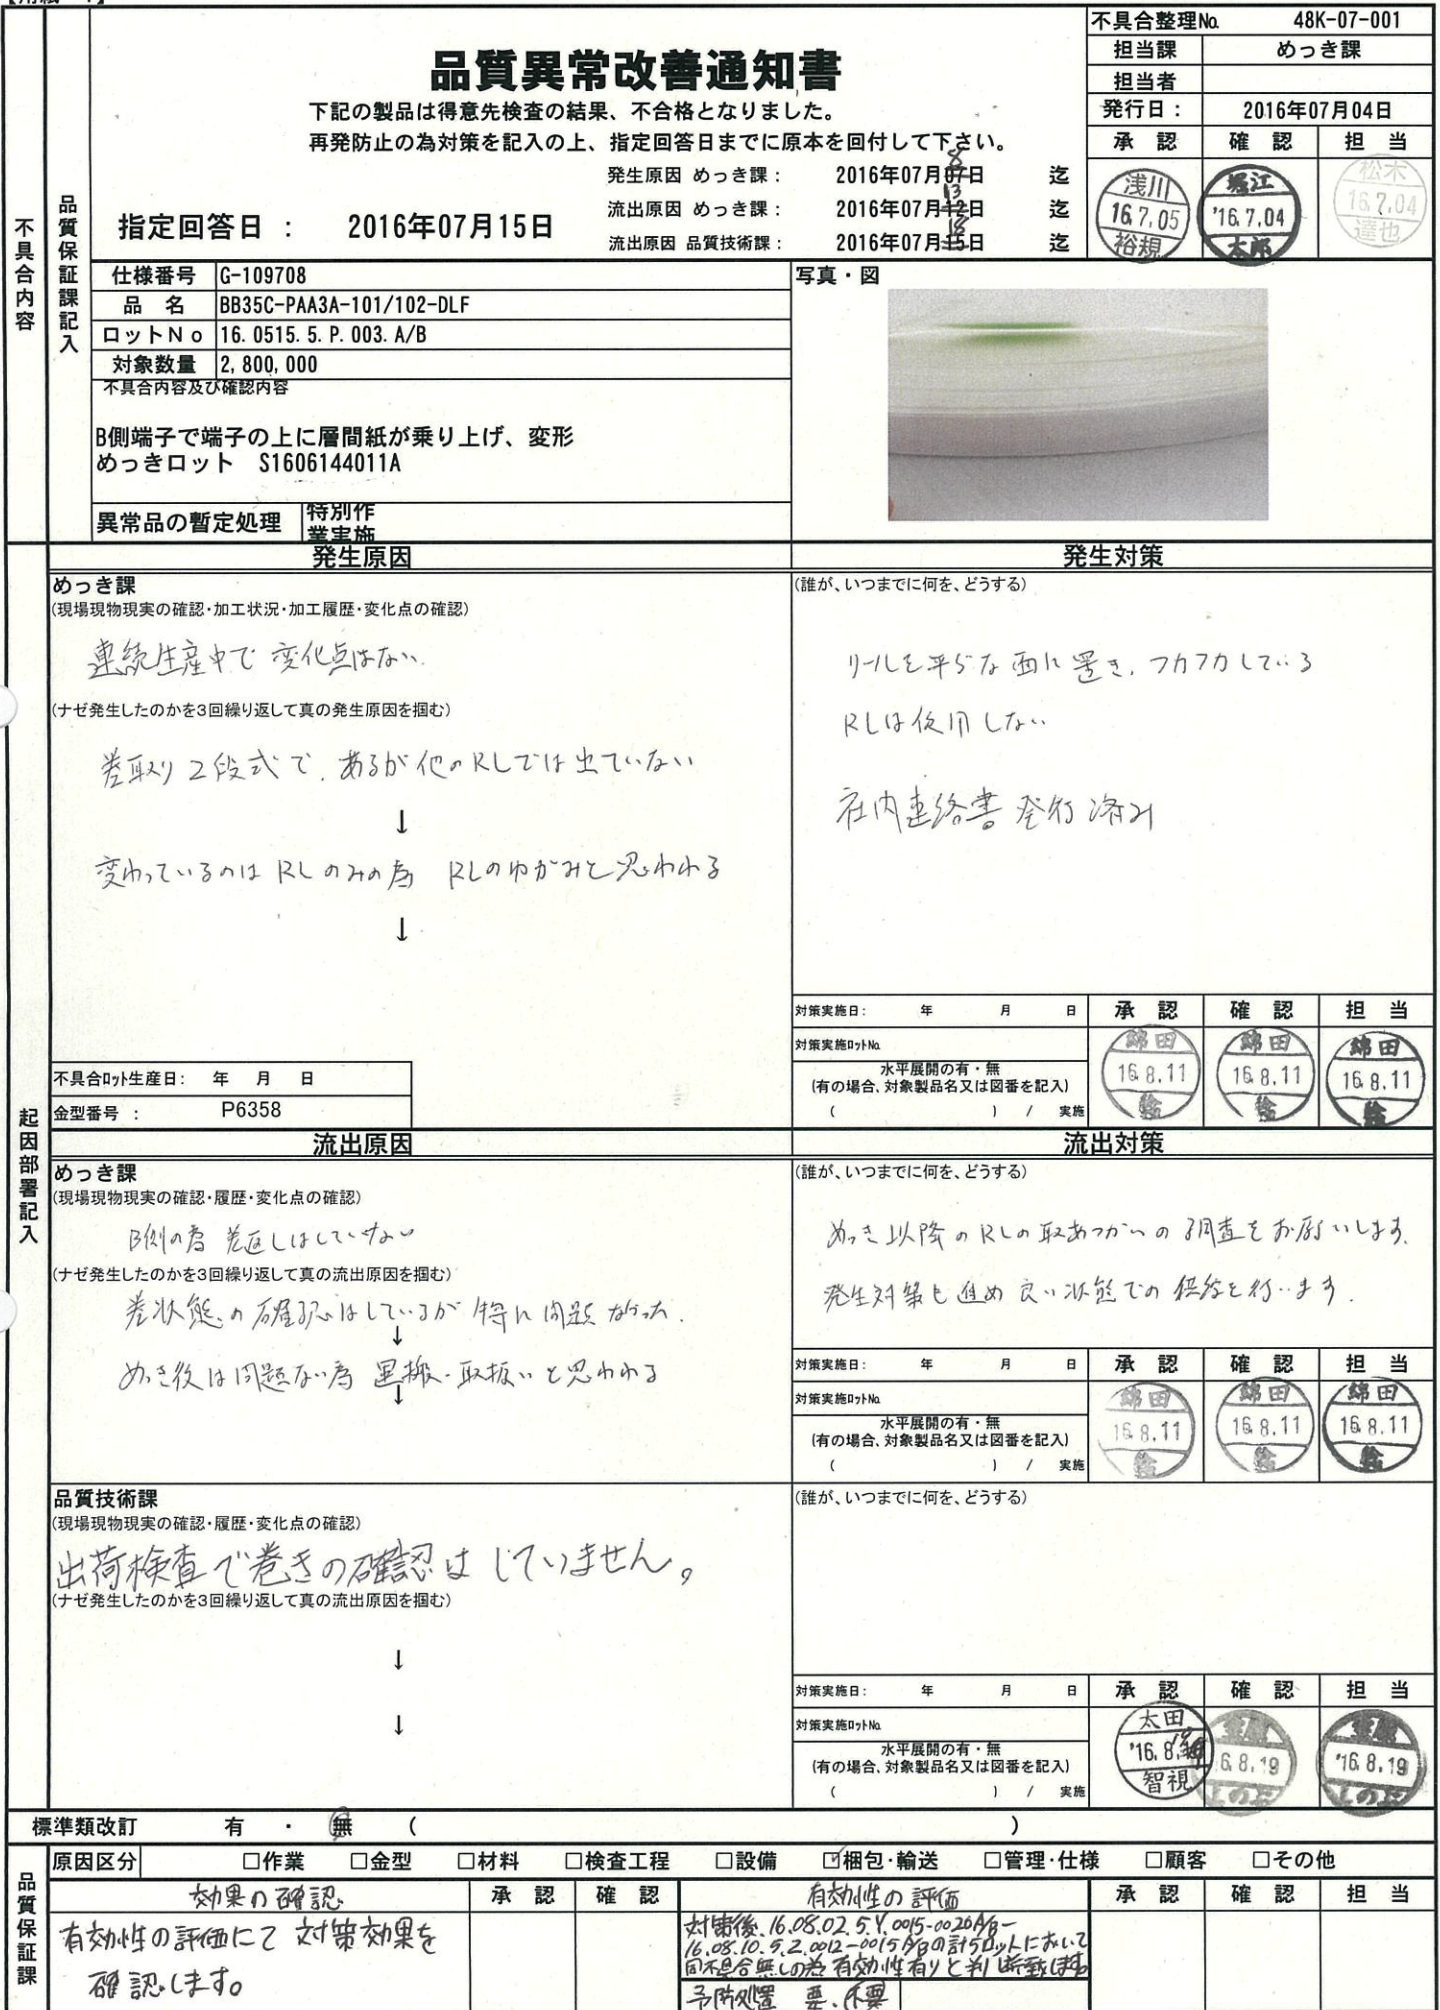 不具合整理No. 48K-07-001
担当課 めっき課
担当者
発行日： 2016年07月04日
承認 確認 担当
浅川 16.7.05 裕規
堀江 '16.7.04 太郎
松木 16.7.04 達也
品質異常改善通知書
下記の製品は得意先検査の結果、不合格となりました。
再発防止の為対策を記入の上、指定回答日までに原本を回付して下さい。
発生原因 めっき課： 2016年07月07日 8 迄
流出原因 めっき課： 2016年07月12日 13 迄
流出原因 品質技術課： 2016年07月15日 18 迄
指定回答日 ： 2016年07月15日
不具合内容
品質保証課記入
仕様番号 G-109708
品 名 BB35C-PAA3A-101/102-DLF
ロットNo 16.0515.5.P.003.A/B
対象数量 2,800,000
不具合内容及び確認内容
B側端子で端子の上に層間紙が乗り上げ、変形
めっきロット S1606144011A
異常品の暫定処理 特別作業実施
写真・図
起因部署記入
発生原因
めっき課
(現場現物現実の確認・加工状況・加工履歴・変化点の確認)
連続生産中で 変化点はない.
(ナゼ発生したのかを3回繰り返して真の発生原因を掴む)
巻取り2段式で、あるが他のRLでは出ていない
↓
変わっているのは RLのみの為 RLのゆがみと思われる
↓
不具合ロット生産日： 年 月 日
金型番号 ： P6358
発生対策
(誰が、いつまでに何を、どうする)
リールを平らな面に置き、フカフカしている
RLは使用しない
社内連絡書 発行済み
対策実施日： 年 月 日
対策実施ロットNo.
水平展開の有・無
(有の場合、対象製品名又は図番を記入)
( ) / 実施
承認 確認 担当
綿田 16.8.11
綿田 16.8.11
綿田 16.8.11
流出原因
めっき課
(現場現物現実の確認・履歴・変化点の確認)
B側の為 巻返しはしていない
(ナゼ発生したのかを3回繰り返して真の流出原因を掴む)
巻状態の確認はしているが 特に問題なかった.
↓
めっき後は問題ない為 運搬・取扱いと思われる
↓
流出対策
(誰が、いつまでに何を、どうする)
めっき以降のRLの取あつかいの調査をお願いします.
発生対策も進め良い状態での供給を行います.
対策実施日： 年 月 日
対策実施ロットNo.
水平展開の有・無
(有の場合、対象製品名又は図番を記入)
( ) / 実施
承認 確認 担当
綿田 16.8.11
綿田 16.8.11
綿田 16.8.11
品質技術課
(現場現物現実の確認・履歴・変化点の確認)
出荷検査で巻きの確認はしていません。
(ナゼ発生したのかを3回繰り返して真の流出原因を掴む)
↓
↓
(誰が、いつまでに何を、どうする)
対策実施日： 年 月 日
対策実施ロットNo.
水平展開の有・無
(有の場合、対象製品名又は図番を記入)
( ) / 実施
承認 確認 担当
太田 '16.8.19 智視
6.8.19
'16.8.19
標準類改訂 有 ・ 無 ( )
品質保証課
原因区分 □作業 □金型 □材料 □検査工程 □設備 ☑梱包・輸送 □管理・仕様 □顧客 □その他
効果の確認 承認 確認 有効性の評価 承認 確認 担当
有効性の評価にて 対策効果を
確認します。
対策後、16.08.02.5.Y.0015-0020A/B-
16.08.10.5.Z.0012-0015A/Bの計5ロットにおいて
同不具合無しの為 有効性有りと判断致します
予防処置 要・不要